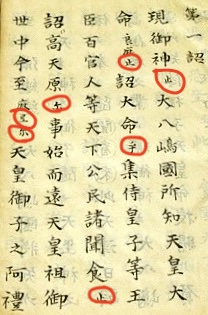 第一詔
現御神止大八嶋國所知天皇大
命良麻止詔大命乎集侍皇子等王
臣百官人等天下公民諸聞食止
詔高天原尓事始而遠天皇祖御
世中今至麻弖尓天皇御子之阿禮